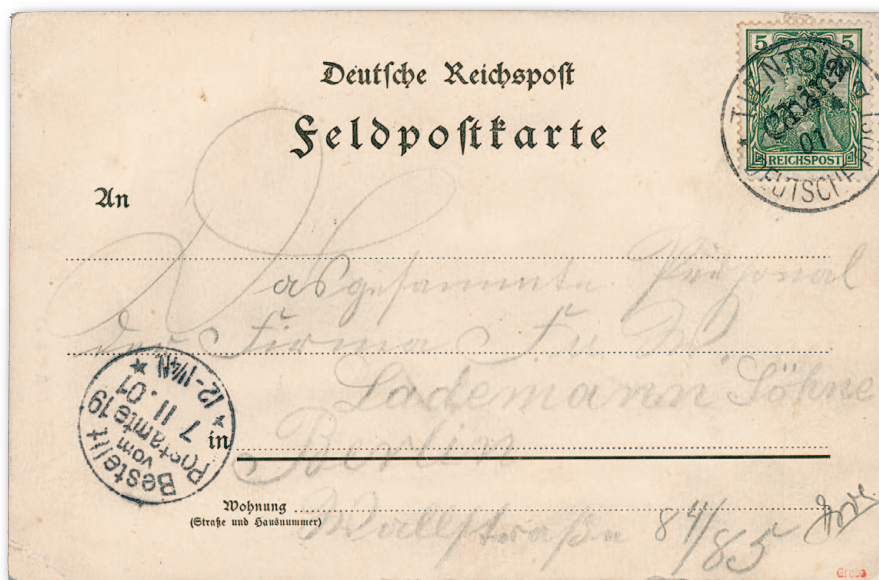 Deutsche Reichspost
Feldpostkarte
5 5
China
REICHSPOST
TIENTSIN
01
DEUTSCHE POST
An
Das gesammte Personal
der Firma F. W.
Lademann Söhne
in Berlin
Wohnung
(Straße und Hausnummer)
Wallstraße 84/85
Bestellt
vom
Postamte 19
7 11. 01
12-1¼N